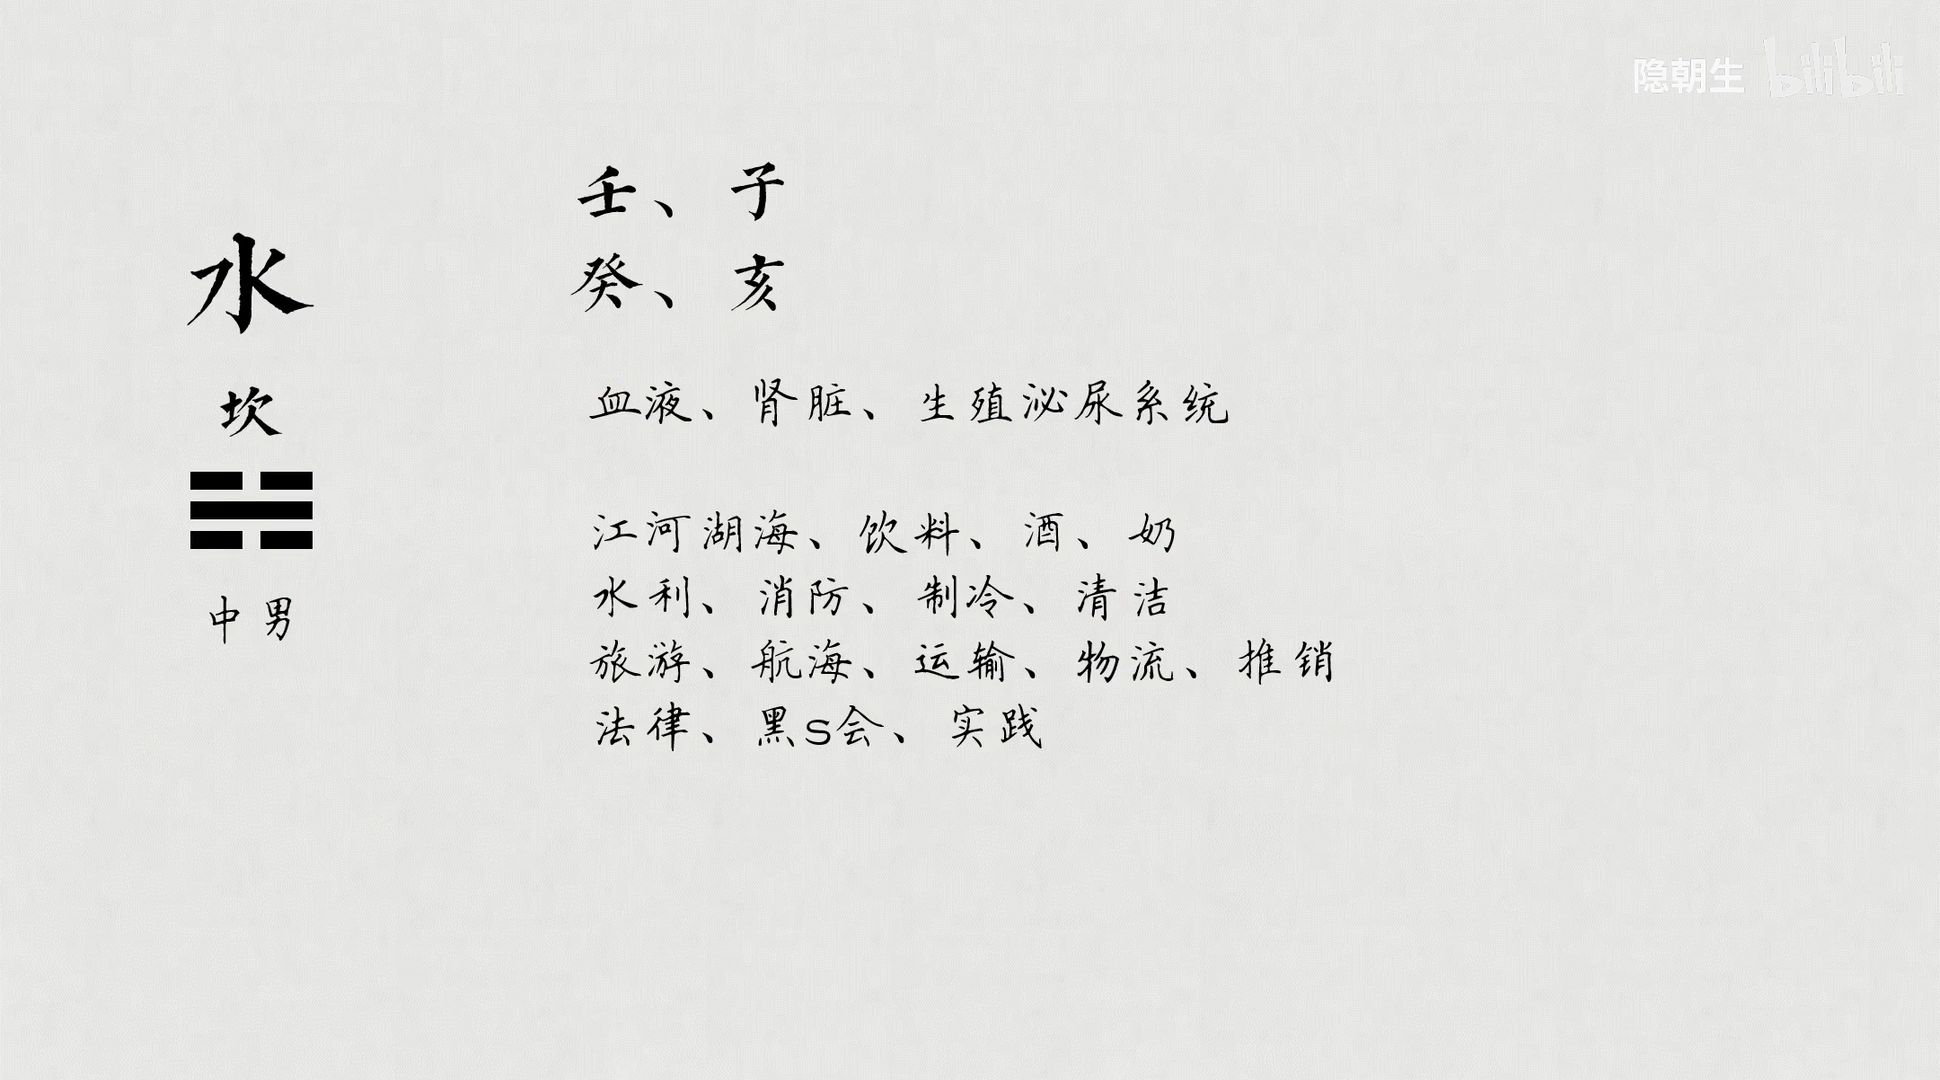 隐朝生 bilibili
水
坎
中男
壬、子
癸、亥
血液、肾脏、生殖泌尿系统
江河湖海、饮料、酒、奶
水利、消防、制冷、清洁
旅游、航海、运输、物流、推销
法律、黑S会、实践